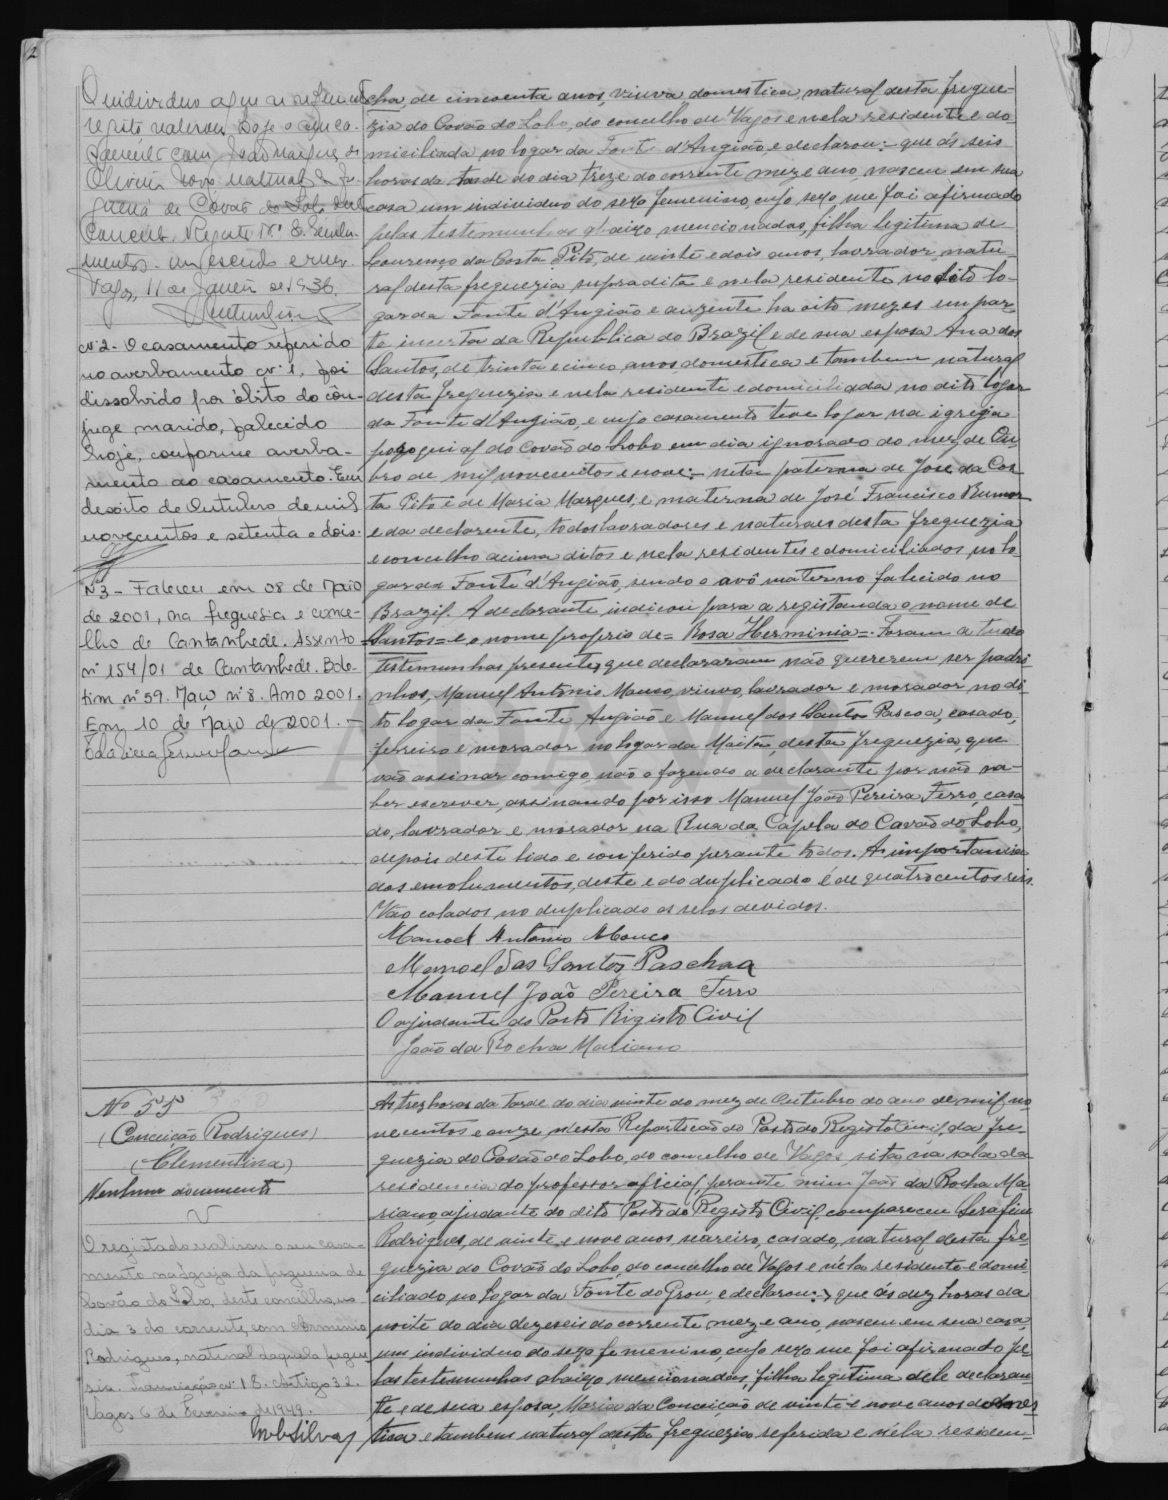 2
O individuo a que se refere este
registo realizou hoje o seu ca-
samento com João Marques de
Oliveira Novo natural da fre-
guesia de Covão do Lobo deste
Concelho. Registo Nº 8.
Vagos, 11 de Janeiro de 1936.
Nº 2 - O casamento referido
no averbamento nº 1, foi
dissolvido por óbito do côn-
juge marido, falecido
hoje, conforme averba-
mento ao casamento. Em
dezoito de Outubro de mil
novecentos e setenta e dois.
Nº 3 - Faleceu em 08 de Maio
de 2001, na freguesia e conce-
lho de Cantanhede. Assento
nº 154/01 de Cantanhede. Bole-
tim nº 59. Maço nº 8. Ano 2001.
Em 10 de Maio de 2001. -
cha, de cincoenta anos, viuva domestica, natural desta fregue-
zia do Covão do Lobo, do concelho de Vagos e nela residente e do-
miciliada no logar da Fonte d'Angião, e declarou:- que ás seis
horas da tarde do dia treze do corrente mez e ano, nasceu em sua
casa um individuo do sexo femenino, cujo sexo, me foi afirmado
pelas testemunhas abaixo mencionadas, filha legitima de
Lourenço da Costa Pito, de vinte e dois anos, lavrador, natu-
ral desta freguezia supradita e nela residente no dito lo-
gar da Fonte d'Angião e auzente ha oito mezes em par-
te incerta da Republica do Brazil e de sua esposa Ana dos
Santos, de trinta e cinco anos, domestica e tambem natural
desta freguezia e nela residente e domiciliada no dito logar
da Fonte d'Angião, e cujo casamento teve logar na igreja
paroquial do Covão do Lobo em dia ignorado do mez de Ou-
bro de mil novecentos e nove:- neta paterna de José da Cos-
ta Pito e de Maria Marques, e materna de José Francisco Rumor
e da declarante, todos lavradores e naturaes desta freguezia
e concelho acima ditos e nela residentes e domiciliados no lo-
gar da Fonte d'Angião, sendo o avô materno falecido no
Brazil. A declarante indicou para a registanda o nome de
=Santos= e o nome proprio de= Rosa Herminia=. Foram a tudo
testemunhas presentes, que declararam não quererem ser padri-
nhos, Manuel Antonio Mouco, viuvo, lavrador e morador no di-
to logar da Fonte Angião e Manuel dos Santos Pascoa, casado,
ferreiro e morador no logar da Maita, desta freguezia, que
vão assinar comigo, não o fazendo a declarante por não sa-
ber escrever, assinando por isso Manuel João Pereira Ferro, casa-
do, lavrador e morador na Rua da Capela do Covão do Lobo,
depois deste lido e conferido perante todos. A importancia
dos emolumentos, deste e do duplicado é de quatrocentos reis.
Vão colados no duplicado os selos devidos.
Manoel Antonio Mouco
Manoel das Santos Paschoa
Manuel João Pereira Ferro
O ajudante do Posto Rigisto Civil
João da Rocha Mariano
Nº 55
(Conceição Rodrigues)
(Clementina)
Nenhum documento
O registado realisou o seu casa-
mento na Igreja da freguesia de
Covão do Lobo, deste concelho, no
dia 3 do corrente, com Arminio
Rodrigues, natural daquela fregue-
sia. Transcrição nº 18. Artigo 32.
Vagos 6 de Fevereiro de 1949.
Ás trez horas da tarde do dia vinte do mez de Outubro do ano de mil no-
vecentos e onze, n'esta Repartição do Posto do Registo Civil, da fre-
guezia do Covão do Lobo, do concelho de Vagos, sita na sala da
residencia do professor oficial, perante mim João da Rocha Ma-
riano, ajudante do dito Posto do Registo Civil, compareceu Serafim
Rodrigues, de vinte e nove anos, seareiro, casado, natural desta fre-
guezia do Covão do Lobo, do concelho de Vagos e n'ela residente e domi-
ciliado no logar da Fonte do Grou, e declarou:- que ás dez horas da
noite do dia dezeseis do corrente mez e ano, nasceu em sua casa,
um individuo do sexo femenino, cujo sexo me foi afirmado pe-
las testemunhas abaixo mencionadas, filha legitima dele declaran-
te e de sua esposa, Maria da Conceição de vinte e nove anos domes-
tica e tambem natural desta freguezia referida e n'ela residen-